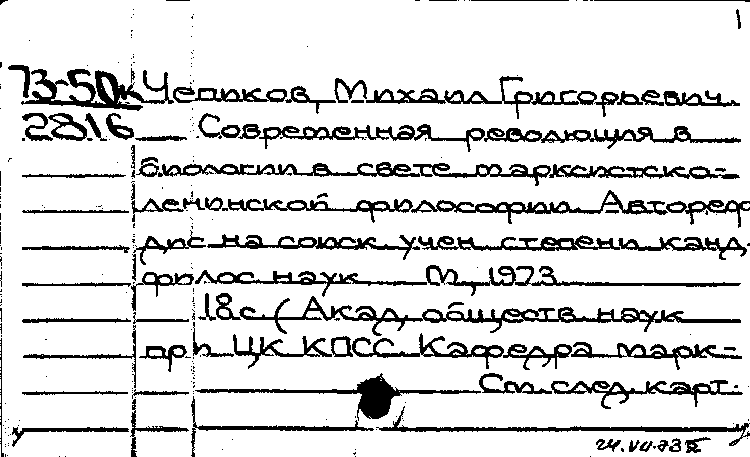 1
73-50к Чепиков, Михаил Григорьевич.
2816 Современная революция в
биологии в свете марксистско-
ленинской философии. Автореф
дис. на соиск. учен. степени канд.
филос. наук. М., 1973
18 с. (Акад. обществ. наук
при ЦК КПСС. Кафедра марк-
См. след. карт.